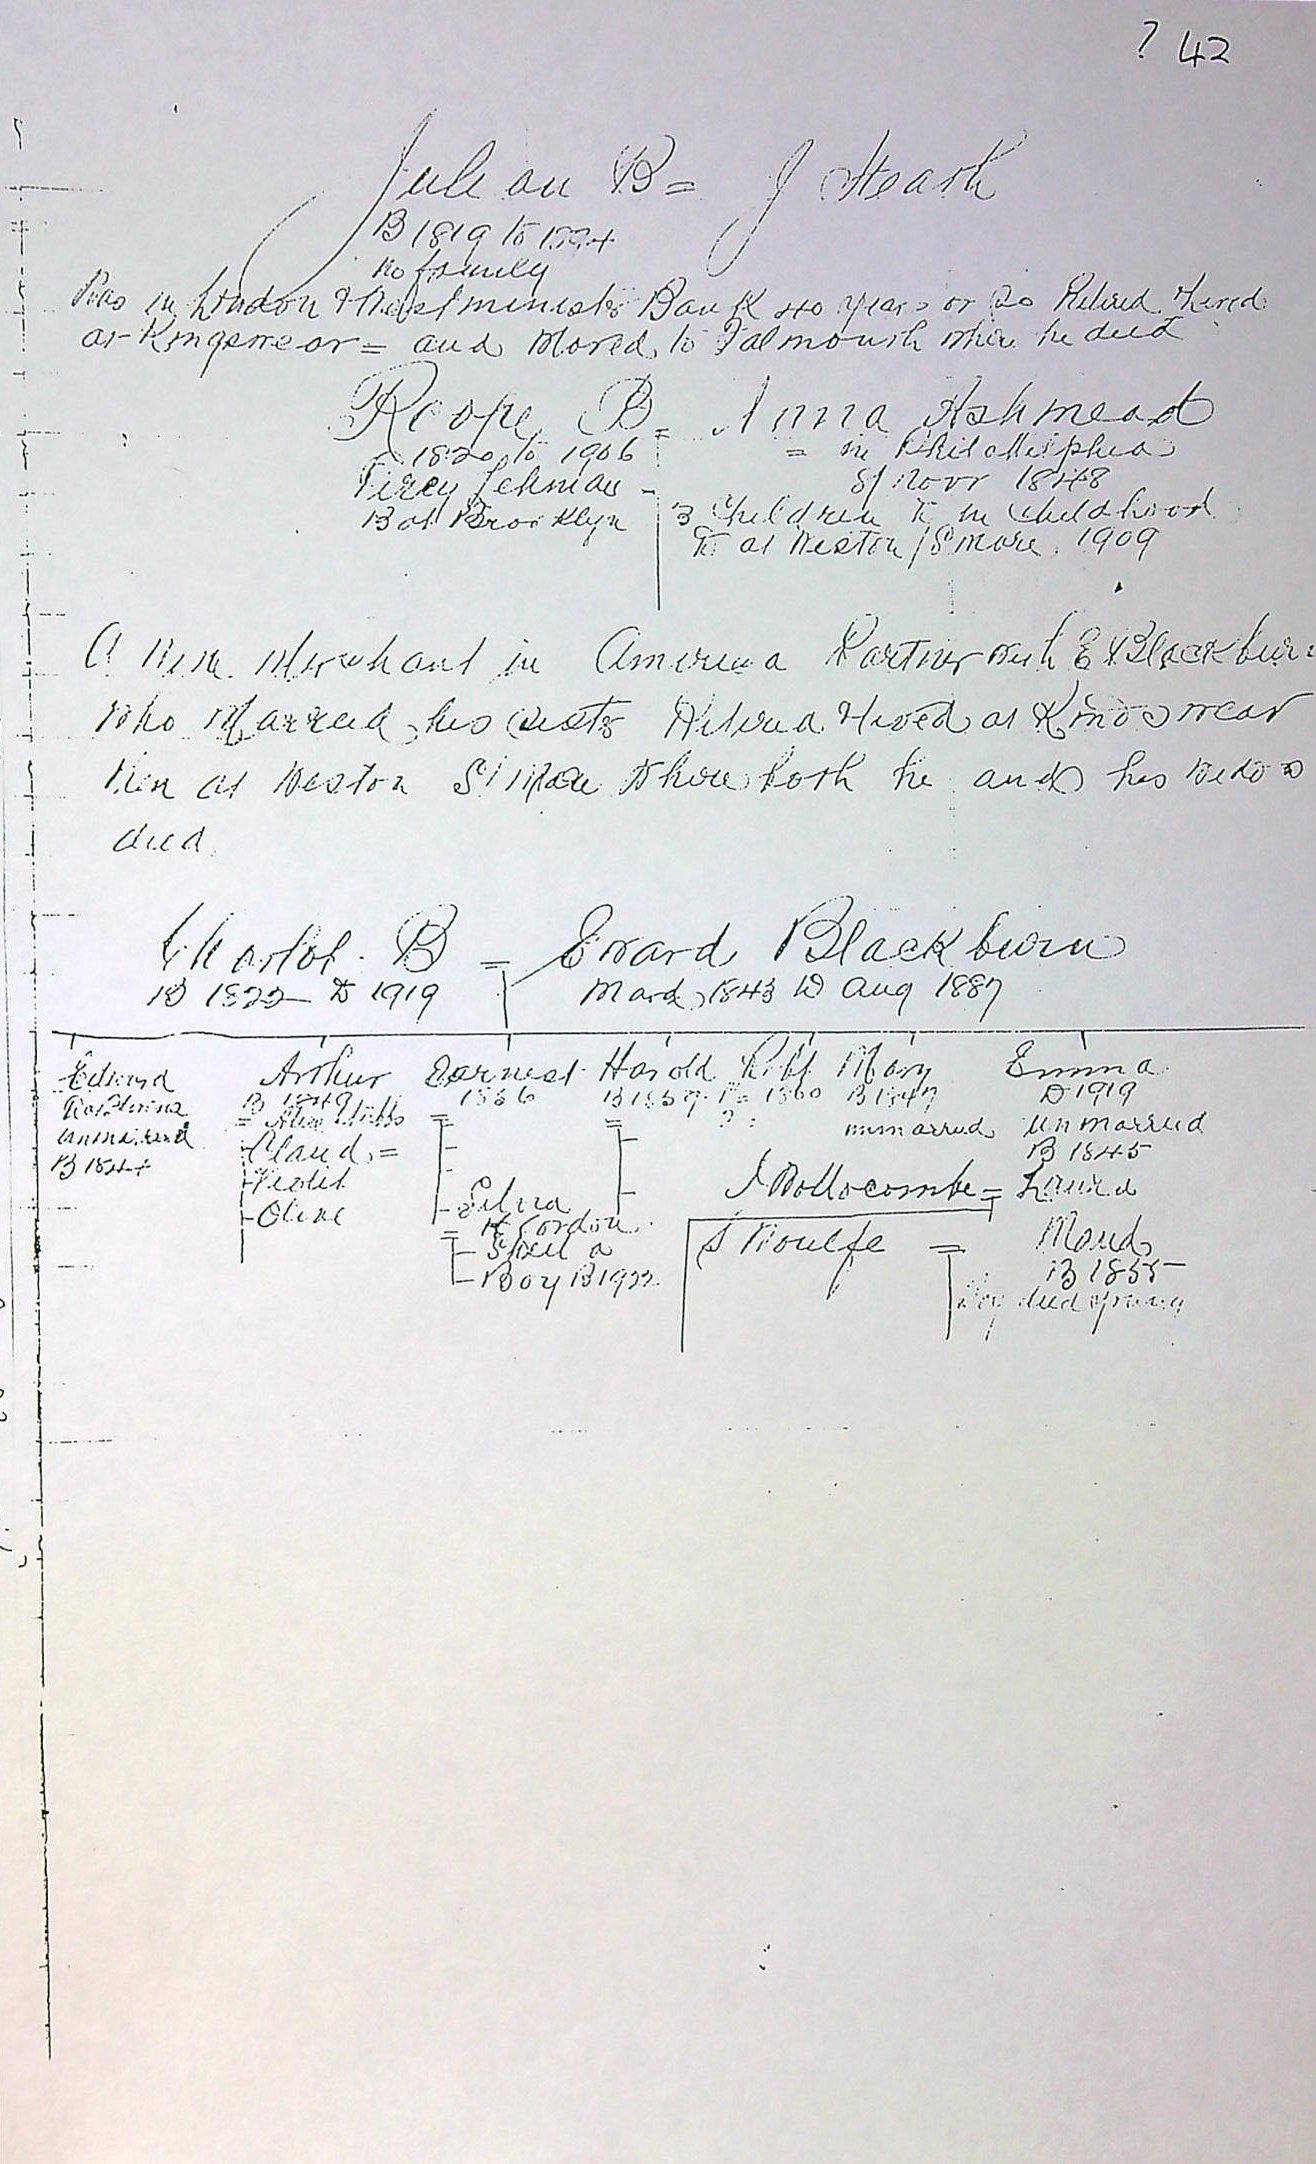 ? 42
Julian B = J Heath
B 1819 to
no family
Was in London & Westminster Bank 40 years or so Retired & lived
at Kingswear = and Moved to Falmouth where he died
Roope B = Anna Ashmead
1820 to 1906 = in Philadelphia
Percy Lehman 8/ Novr 1848
B at Brooklyn 3 Children D in Childhood
D at Weston S more 1909
A Wine Merchant in America Partner with E Blackburn
who Married his sister Retired & lived at Kingswear
then at Weston S Mare where both he and his widow
died
Charlot B = Eward Blackburn
B 1822 D 1919 Mard 1843 D Aug 1887
Edward Arthur Earnest Harold Mary Emma
B 1849 1856 B 1859 1860 B 1847 D 1919
unmarried = = = ? unmarried unmarried
B 1844 Claud = B 1845
Violet J Bollocombe = Laura
Olive
= H Gordon
S Woulfe = Maud
Boy B 1922 B 1855
Boy died young